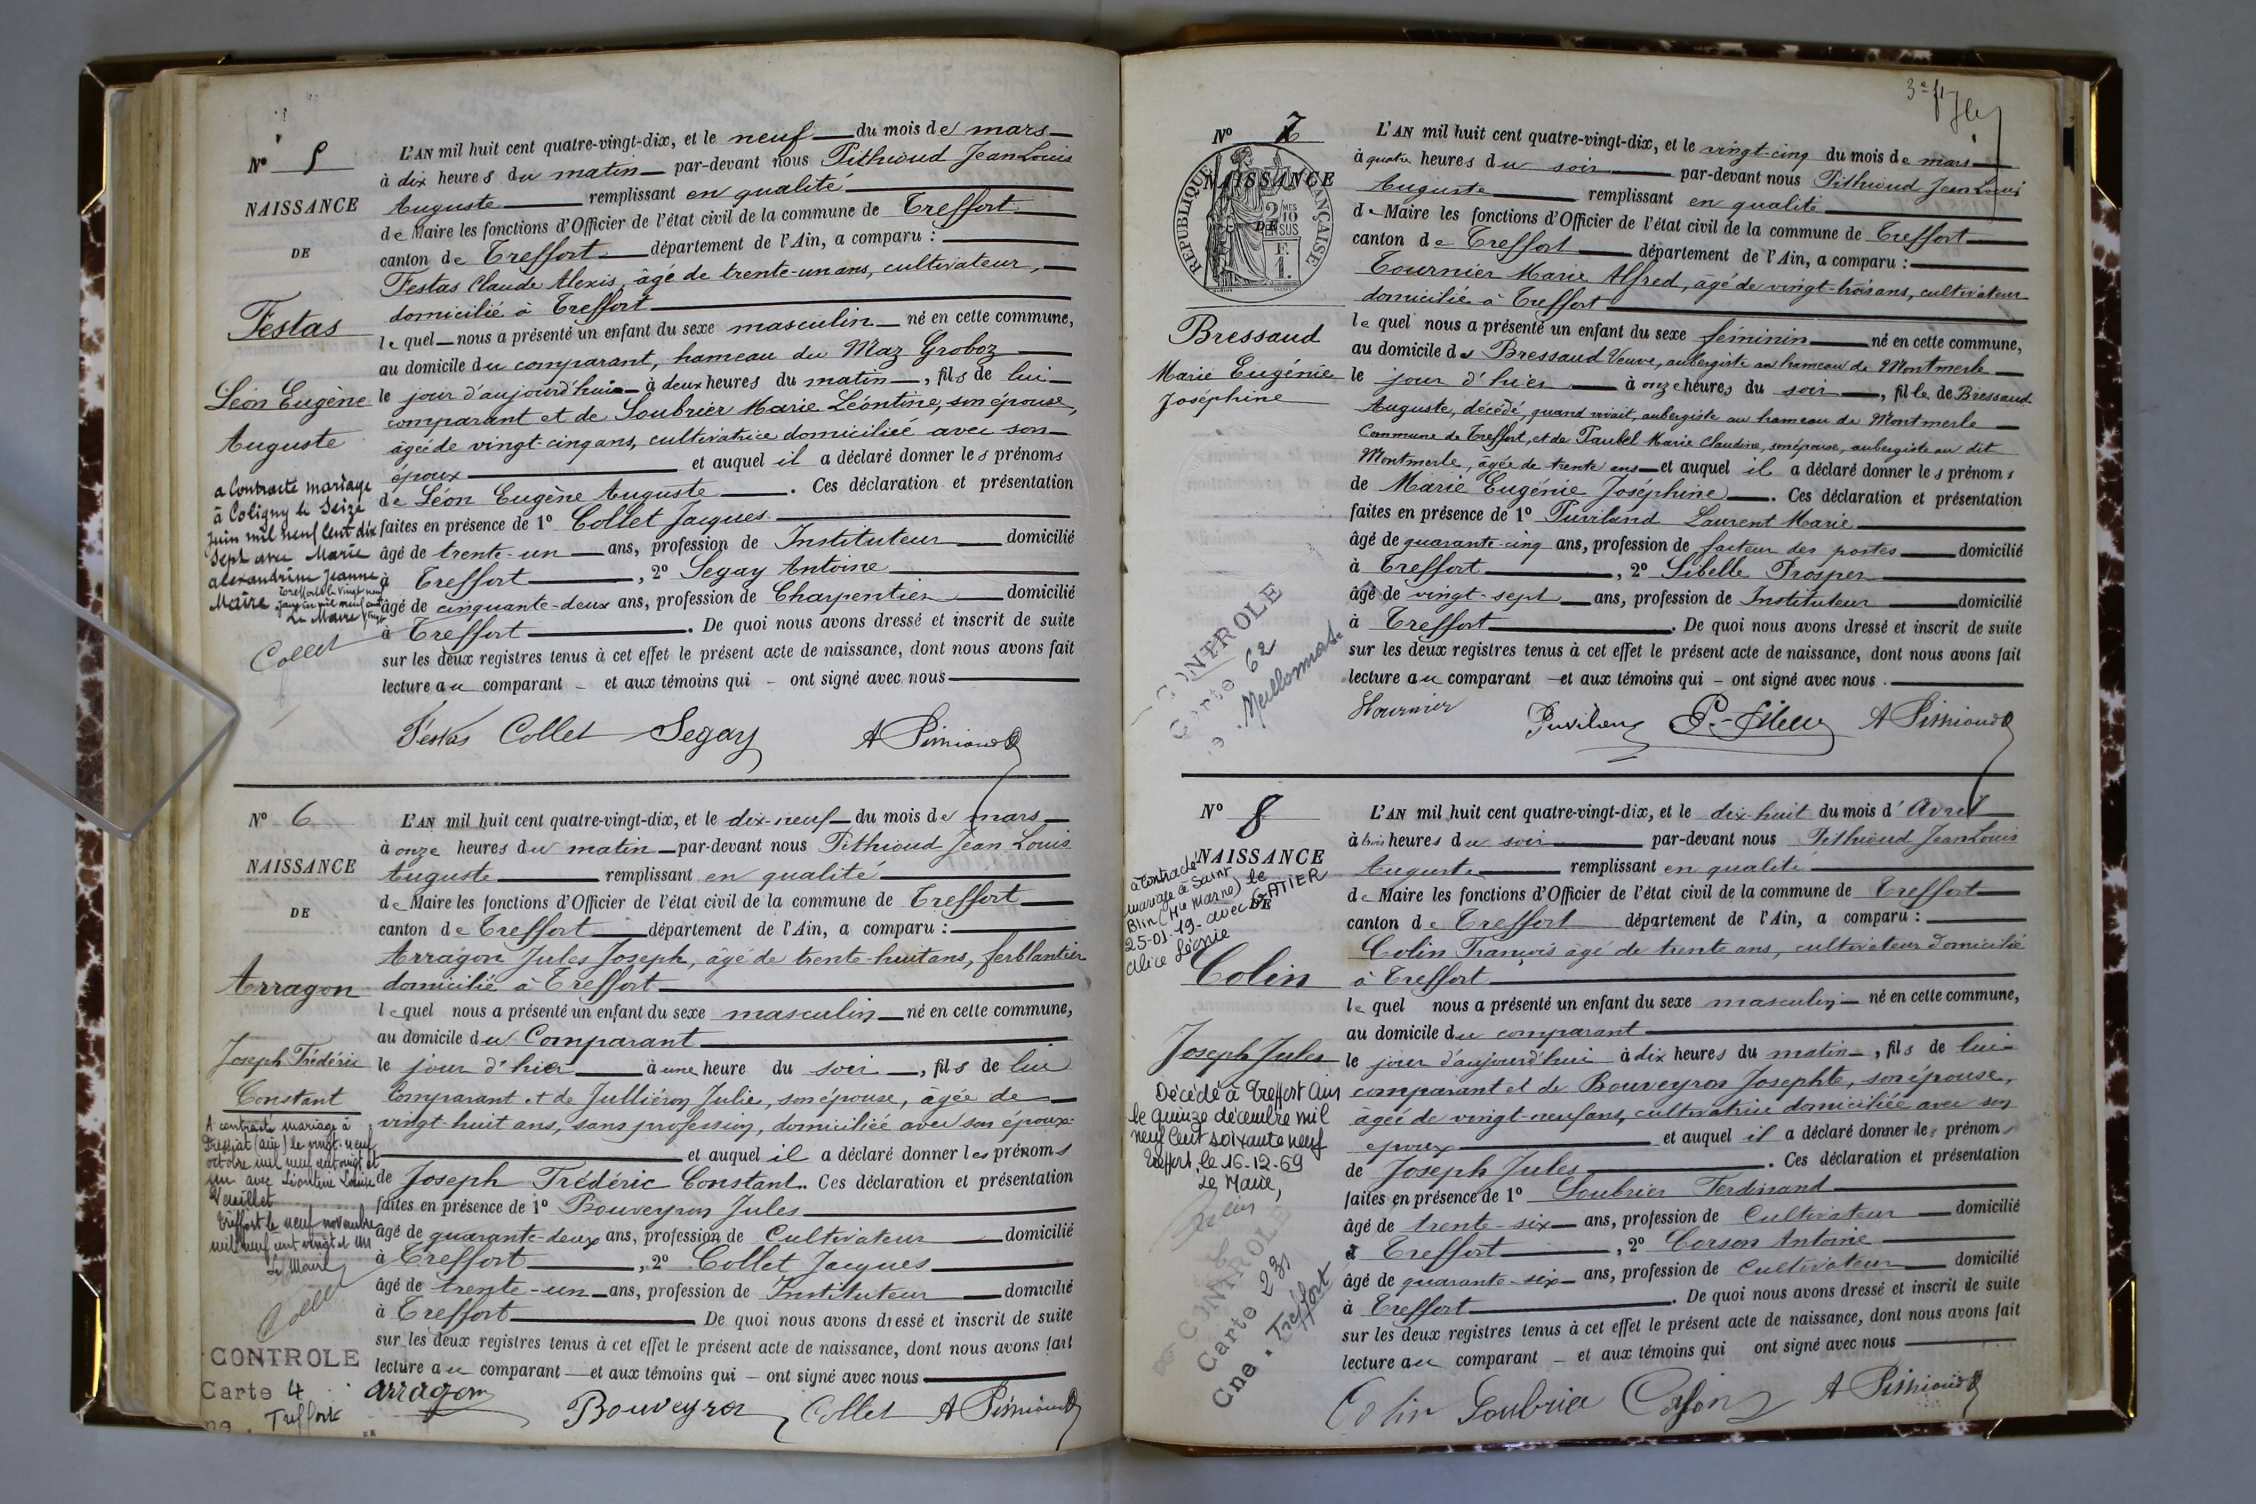 N° 5
NAISSANCE
DE
Festas
Léon Eugène
Auguste
a contracté mariage
à Coligny le Seize
juin mil neuf cent dix
sept avec Marie
alexandrine Jeanne
Maire
Treffort le vingt neuf
Le Maire
Collet
L'AN mil huit cent quatre-vingt-dix, et le neuf du mois de mars
à dix heures du matin par-devant nous Pithioud Jean Louis
Auguste remplissant en qualité
de Maire les fonctions d'Officier de l'état civil de la commune de Treffort
canton de Treffort département de l'Ain, a comparu :
Festas Claude Alexis, âgé de trente-un ans, cultivateur,
domicilié à Treffort
lequel nous a présenté un enfant du sexe masculin né en cette commune,
au domicile du comparant, hameau du Maz Groboz
le jour d'aujourd'hui à deux heures du matin, fils de lui
comparant et de Soubrier Marie Léontine, son épouse,
âgée de vingt-cinq ans, cultivatrice domiciliée avec son
époux et auquel il a déclaré donner les prénoms
de Léon Eugène Auguste. Ces déclaration et présentation
faites en présence de 1° Collet Jacques
âgé de trente-un ans, profession de Instituteur domicilié
à Treffort, 2° Segay Antoine
âgé de cinquante-deux ans, profession de Charpentier domicilié
à Treffort. De quoi nous avons dressé et inscrit de suite
sur les deux registres tenus à cet effet le présent acte de naissance, dont nous avons fait
lecture au comparant et aux témoins qui ont signé avec nous
Festas Collet Segay A Pithioud
N° 6
NAISSANCE
DE
Arragon
Joseph Frédéric
Constant
A contracté mariage à
(ain) le vingt-neuf
octobre mil neuf cent vingt et
un avec Léontine Louise
Treffort le neuf novembre
mil neuf cent vingt et un
Le Maire
Collet
CONTROLE
Carte 4
Treffort
L'AN mil huit cent quatre-vingt-dix, et le dix-neuf du mois de mars
à onze heures du matin par-devant nous Pithioud Jean Louis
Auguste remplissant en qualité
de Maire les fonctions d'Officier de l'état civil de la commune de Treffort
canton de Treffort département de l'Ain, a comparu :
Arragon Jules Joseph, âgé de trente-huit ans, ferblantier
domicilié à Treffort
lequel nous a présenté un enfant du sexe masculin né en cette commune,
au domicile du Comparant
le jour d'hier à une heure du soir, fils de lui
Comparant et de Julliéron Julie, son épouse, âgée de
vingt-huit ans, sans profession, domiciliée avec son époux
et auquel il a déclaré donner les prénoms
de Joseph Frédéric Constant. Ces déclaration et présentation
faites en présence de 1° Bouveyron Jules
âgé de quarante-deux ans, profession de Cultivateur domicilié
à Treffort, 2° Collet Jacques
âgé de trente-un ans, profession de Instituteur domicilié
à Treffort De quoi nous avons dressé et inscrit de suite
sur les deux registres tenus à cet effet le présent acte de naissance, dont nous avons fait
lecture au comparant et aux témoins qui ont signé avec nous
arragon Bouveyron Collet A Pithioud
N° 7
NAISSANCE
DE
RÉPUBLIQUE FRANÇAISE
Bressaud
Marie Eugénie
Joséphine
CONTROLE
Carte 62
Meillonnas
L'AN mil huit cent quatre-vingt-dix, et le vingt-cinq du mois de mars
à quatre heures du soir par-devant nous Pithioud Jean Louis
Auguste remplissant en qualité
de Maire les fonctions d'Officier de l'état civil de la commune de Treffort
canton de Treffort département de l'Ain, a comparu :
Tournier Marie Alfred, âgé de vingt-trois ans, cultivateur
domicilié à Treffort
lequel nous a présenté un enfant du sexe féminin né en cette commune,
au domicile de Bressaud Veuve, aubergiste au hameau de Montmerle
le jour d'hier à onze heures du soir, fille de Bressaud
Auguste, décédé, quand vivait, aubergiste au hameau de Montmerle
Commune de Treffort, et de Paubel Marie Claudine, son épouse, aubergiste au dit
Montmerle, âgée de trente ans et auquel il a déclaré donner les prénoms
de Marie Eugénie Joséphine. Ces déclaration et présentation
faites en présence de 1° Puviland Laurent Marie
âgé de quarante-cinq ans, profession de facteur des postes domicilié
à Treffort, 2° Sibelle Prosper
âgé de vingt-sept ans, profession de Instituteur domicilié
à Treffort. De quoi nous avons dressé et inscrit de suite
sur les deux registres tenus à cet effet le présent acte de naissance, dont nous avons fait
lecture au comparant et aux témoins qui ont signé avec nous.
Tournier Puviland A Pithioud
N° 8
NAISSANCE
DE
a contracté
mariage à Saint
Blin (Hte Marne) le
25-01-19- avec GATIER
Alice Léonie
Colin
Joseph Jules
Décédé à Treffort Ain
le quinze décembre mil
neuf cent soixante neuf
Treffort, le 16-12-69
Le Maire,
CONTROLE
Carte 231
Cne. Treffort
L'AN mil huit cent quatre-vingt-dix, et le dix-huit du mois d'Avril
à trois heures du soir par-devant nous Pithioud Jean Louis
Auguste remplissant en qualité
de Maire les fonctions d'Officier de l'état civil de la commune de Treffort
canton de Treffort département de l'Ain, a comparu :
Colin François âgé de trente ans, cultivateur domicilié
à Treffort
lequel nous a présenté un enfant du sexe masculin né en cette commune,
au domicile du comparant
le jour d'aujourd'hui à dix heures du matin, fils de lui
comparant et de Bouveyron Josephte, son épouse,
âgée de vingt-neuf ans, cultivatrice domiciliée avec son
époux et auquel il a déclaré donner les prénoms
de Joseph Jules. Ces déclaration et présentation
faites en présence de 1° Soubrier Ferdinand
âgé de trente-six ans, profession de Cultivateur domicilié
à Treffort, 2° Corson Antoine
âgé de quarante-six ans, profession de Cultivateur domicilié
à Treffort. De quoi nous avons dressé et inscrit de suite
sur les deux registres tenus à cet effet le présent acte de naissance, dont nous avons fait
lecture au comparant et aux témoins qui ont signé avec nous
Colin Soubrier A Pithioud